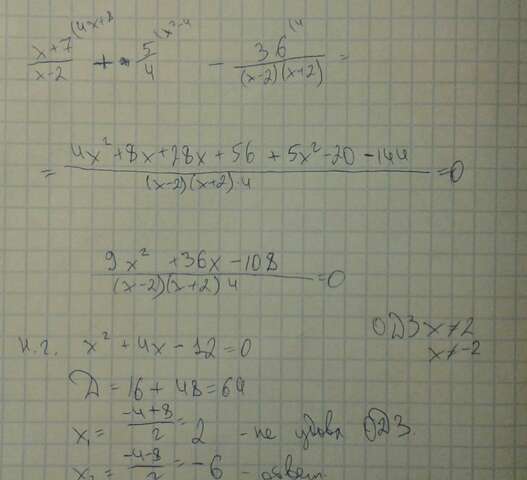 (4x+8 (x²-4 (4
x+7/x-2 + 5/4 - 36/(x-2)(x+2) =
= 4x²+8x+28x+56+5x²-20-144/(x-2)(x+2)·4 =0
9x² +36x-108/(x-2)(x+2)4 =0
ОДЗ x≠2
x≠-2
x²+4x-12=0
Д=16+48=64
x₁= -4+8/2 = 2 - не удовл ОДЗ.
x₂= -4-8/2 = -6 - ответ.